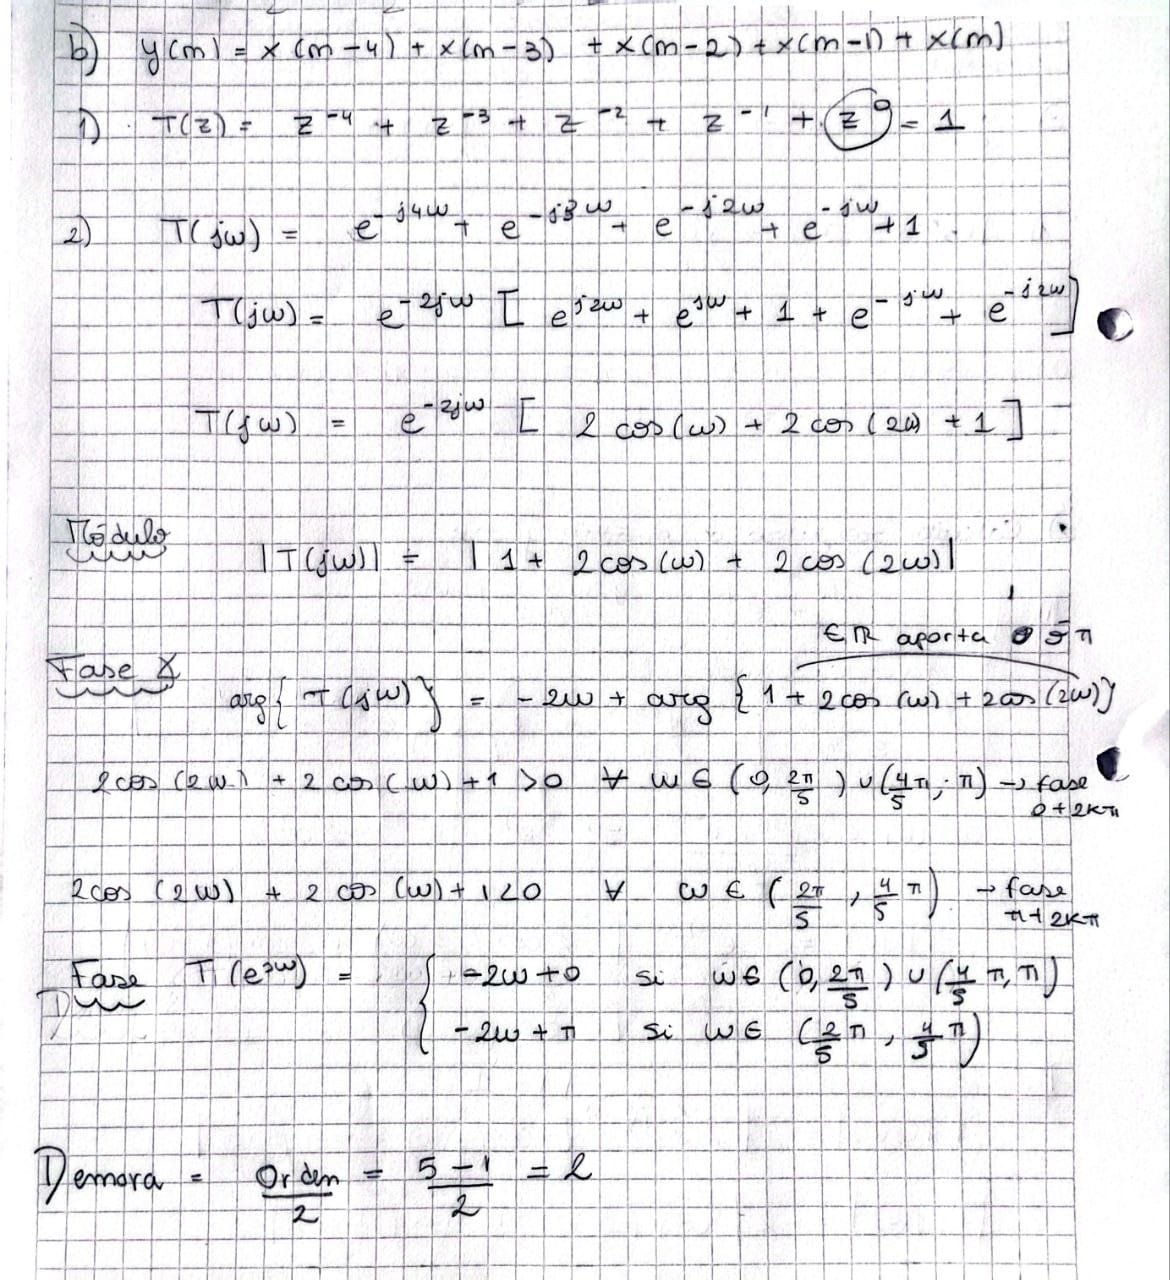 b) y(m) = x(m-4) + x(m-3) + x(m-2) + x(m-1) + x(m)
1) T(z) = z^-4 + z^-3 + z^-2 + z^-1 + z^0 = 1
2) T(jω) = e^-j4ω + e^-j3ω + e^-j2ω + e^-jω + 1
T(jω) = e^-2jω [ e^j2ω + e^jω + 1 + e^-jω + e^-j2ω ]
T(jω) = e^-2jω [ 2 cos(ω) + 2 cos(2ω) + 1 ]
Módulo
|T(jω)| = | 1 + 2 cos(ω) + 2 cos(2ω)|
∈ ℝ aporta 0 ó π
Fase ∡
arg{ T(jω)} = -2ω + arg { 1 + 2 cos(ω) + 2 cos(2ω)}
2 cos(2ω) + 2 cos(ω) + 1 > 0 ∀ ω ∈ (0, 2π/5) ∪ (4/5 π; π) → fase
0 + 2kπ
2 cos(2ω) + 2 cos(ω) + 1 < 0 ∀ ω ∈ (2π/5, 4/5 π) → fase
π + 2kπ
Fase T(e^jω) = { -2ω + 0 si ω ∈ (0, 2π/5) ∪ (4/5 π, π)
-2ω + π si ω ∈ (2/5 π, 4/5 π)
Demora = Orden/2 = 5-1/2 = 2